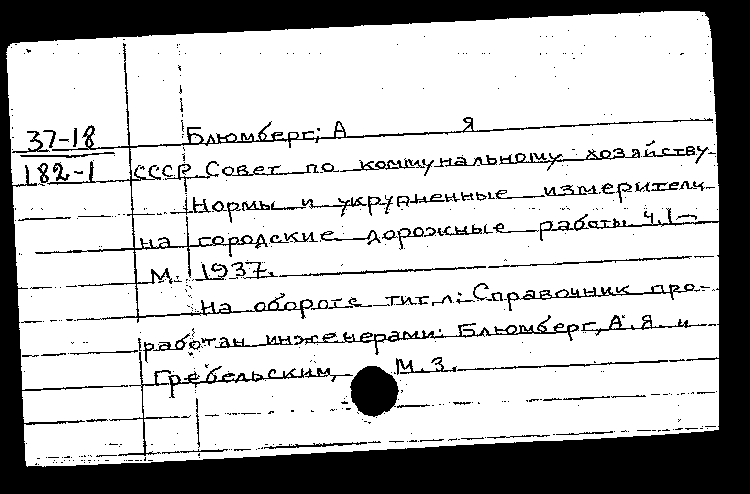 37-18 Блюмберг, А Я
182-1 СССР. Совет по коммунальному хозяйству
Нормы и укрупненные измерители
на городские дорожные работы. Ч.1-
М. 1937.
На обороте тит. л: Справочник про-
работан инженерами: Блюмберг, А. Я и
Гребельским, М. З.